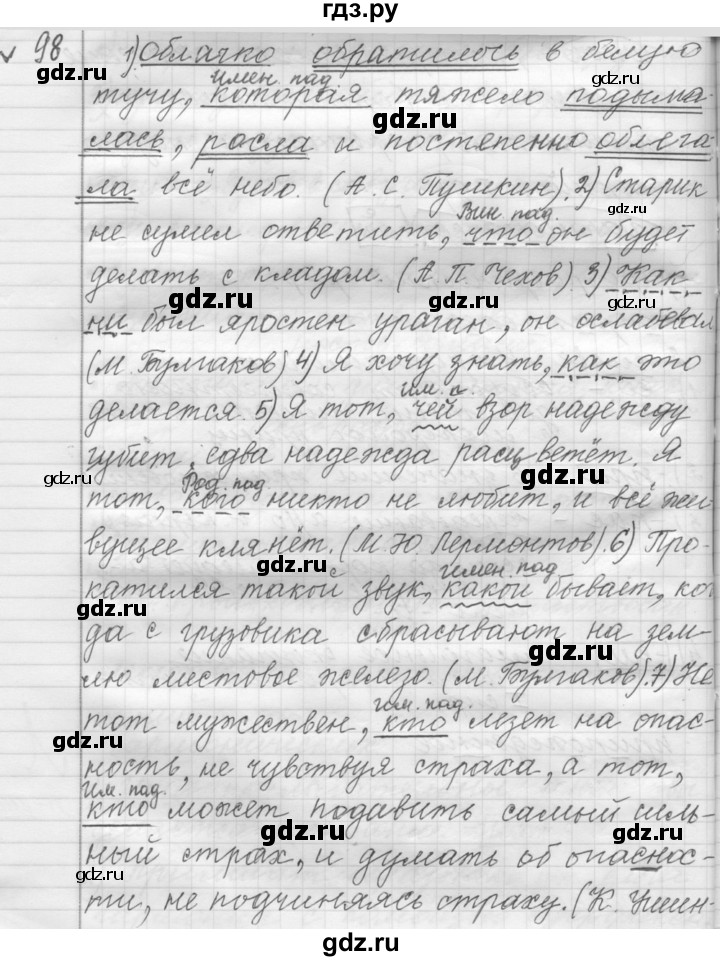 гдз.ру
98 1) Облачко обратилось в белую
имен. пад.
тучу, которая тяжело подыма-
лась, росла и постепенно облега-
ла всё небо. (А. С. Пушкин). 2) Старик
Вин. пад.
не сумел ответить, что он будет
делать с кладом. (А. П. Чехов). 3) Как
ни был яростен ураган, он ослабевал
(М. Булгаков) 4) Я хочу знать, как это
им. п.
делается. 5) Я тот, чей взор надежду
губит, едва надежда расцветёт. Я
Род. пад.
тот, кого никто не любит, и всё жи-
вущее клянёт. (М. Ю. Лермонтов). 6) Про-
имен. пад.
катился такой звук, какой бывает, ког
да с грузовика сбрасывают на зем-
лю листовое железо. (М. Булгаков). 7) Не
им. пад.
тот мужествен, кто лезет на опас-
ность, не чувствуя страха, а тот,
Им. пад.
кто может подавить самый силь-
ный страх, и думать об опаснос-
ти, не подчиняясь страху. (К. Ушин-
gdz.ru
gdz.ru
gdz.ru
gdz.ru
gdz.ru
gdz.ru
gdz.ru
gdz.ru
gdz.ru
gdz.ru
gdz.ru
gdz.ru
gdz.ru
gdz.ru
gdz.ru
gdz.ru
gdz.ru
gdz.ru
gdz.ru
gdz.ru
gdz.ru